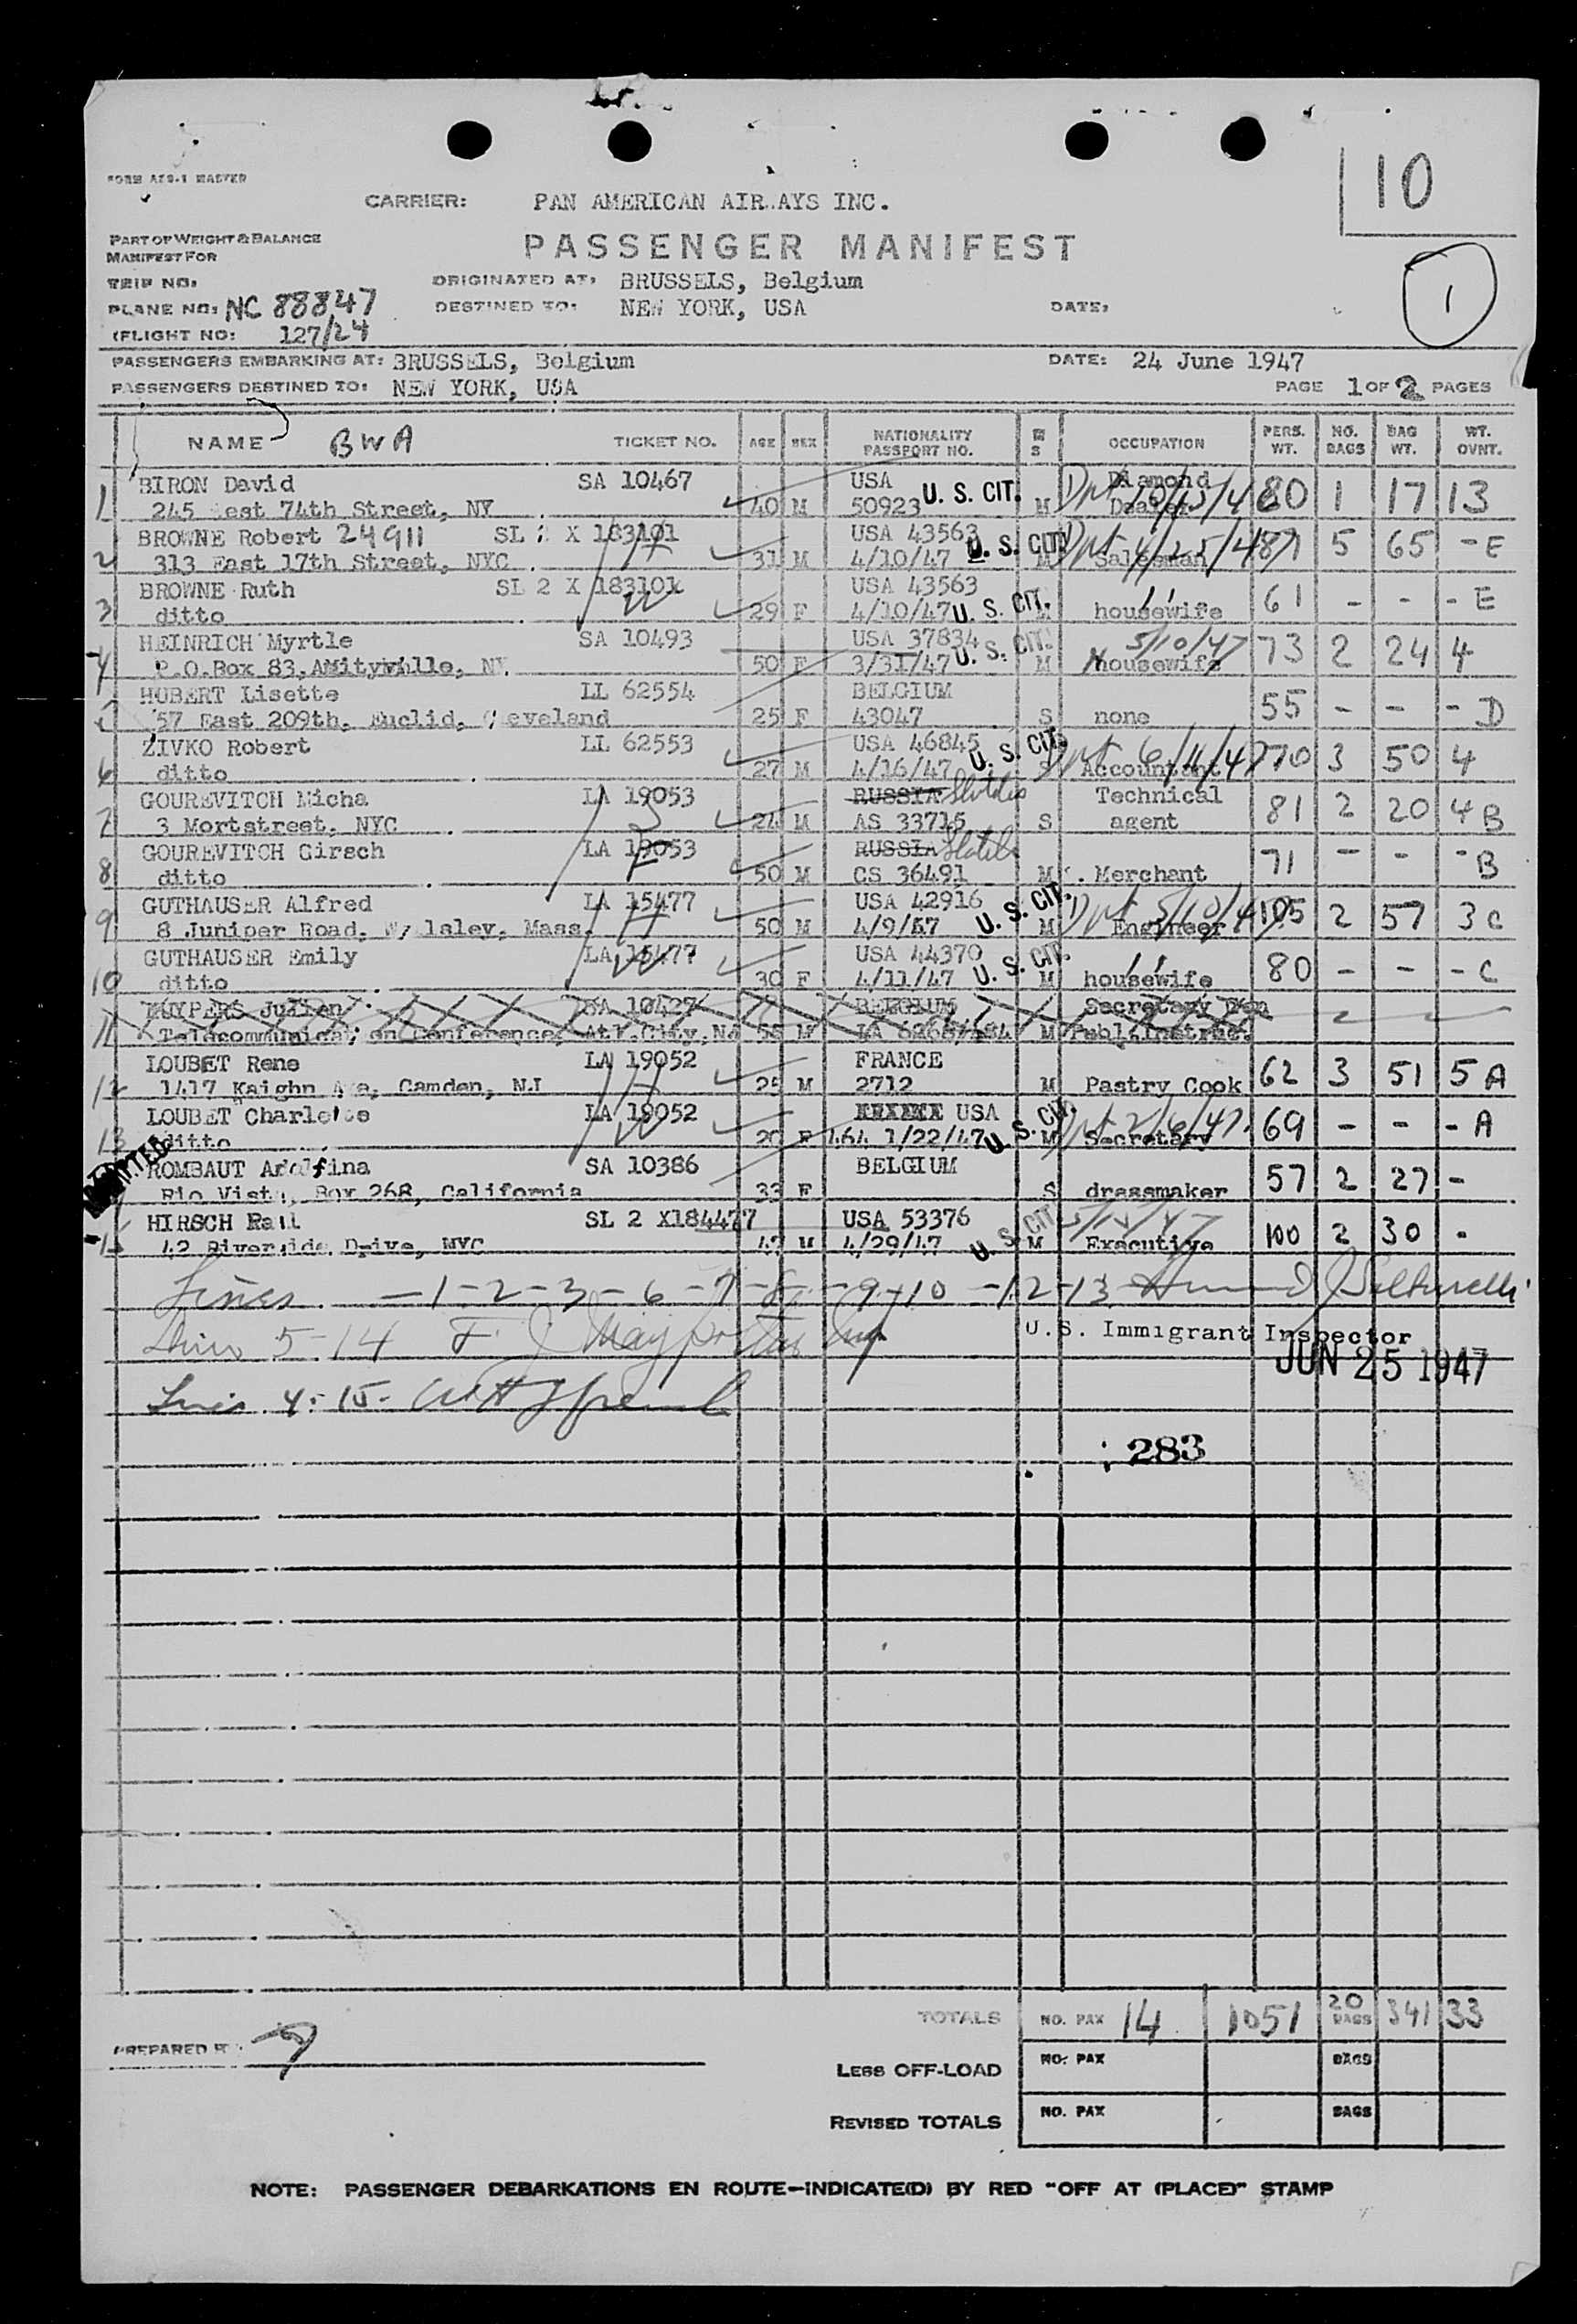 10
FORM AFS-1 MASTER
CARRIER: PAN AMERICAN AIR AYS INC.
PART OF WEIGHT & BALANCE
MANIFEST FOR
PASSENGER MANIFEST
1
TRIP NO:
ORIGINATED AT: BRUSSELS, Belgium
PLANE NO: NC 88847
DESTINED TO: NEW YORK, USA
DATE:
(FLIGHT NO: 127/24
PASSENGERS EMBARKING AT: BRUSSELS, Belgium DATE: 24 June 1947
PASSENGERS DESTINED TO: NEW YORK, USA PAGE 1 OF 2 PAGES
NAME BWA TICKET NO. AGE SEX NATIONALITY PASSPORT NO. M S OCCUPATION PERS. WT. NO. BAGS BAG WT. WT. OVNT.
BIRON David SA 10467 USA U. S. CIT. Diamond
1 245 est 74th Street, NY 40 M 50923 M Dealer 80 1 17 13
BROWNE Robert 24911 SL 2 X 183101 USA 43563 U. S. CIT.
2 313 East 17th Street, NYC 31 M 4/10/47 M Salesman 87 5 65 - E
BROWNE Ruth SL 2 X 183101 USA 43563
3 ditto 29 F 4/10/47 U. S. CIT. M housewife 61 - - - E
HEINRICH Myrtle SA 10493 USA 37834 U. S. CIT. 5/10/47
4 P.O.Box 83, Amityville, NY. 50 F 3/31/47 M housewife 73 2 24 4
HUBERT Lisette LL 62554 BELGIUM
57 East 209th, Euclid, Cleveland 25 F 43047 S none 55 - - - D
ZIVKO Robert LL 62553 USA 46845 U. S. CIT.
6 ditto 27 M 4/16/47 S Accountant 6/11/47 70 3 50 4
GOUREVITCH Micha LA 19053 RUSSIA Technical
7 3 Mortstreet, NYC 24 M AS 33715 S agent 81 2 20 4 B
GOUREVITCH Girsch LA 19053 RUSSIA
8 ditto 50 M CS 36491 M Merchant 71 - - - B
GUTHAUSER Alfred LA 15477 USA 42916 U. S. CIT.
9 8 Juniper Road, W laley, Mass. 50 M 4/9/57 M Engineer 105 2 57 3 C
GUTHAUSER Emily LA 15477 USA 44370 U. S. CIT.
10 ditto 30 F 4/11/47 M housewife 80 - - - C
KUYPERS Julien SA 10427 BELGIUM Secretary Gen
11 Telecommunication Conference, Atl.City, NJ M Publ.Instruc.
LOUBET Rene LA 19052 FRANCE
12 1417 Kaighn Ave, Camden, NJ 25 M 2712 M Pastry Cook 62 3 51 5 A
LOUBET Charlotte LA 19052 USA U. S. CIT.
13 ditto 20 F 464 1/22/47 M Secretary 2/6/47 69 - - - A
ROMBAUT Adolfina SA 10386 BELGIUM
Rio Vista, Box 268, California 33 F S dressmaker 57 2 27 -
HIRSCH Paul SL 2 X184477 USA 53376 U. S. CIT.
15 42 Riverside Drive, NYC 47 M 4/29/47 M Executive 100 2 30 -
Lines - 1 - 2 - 3 - 6 - 7 - 8 - 9 - 10 - 12 - 13
5-14
U.S. Immigrant Inspector
JUN 25 1947
4-15-
283
TOTALS NO. PAX 14 1051 20 BAGS 341 33
PREPARED BY
LESS OFF-LOAD NO. PAX BAGS
REVISED TOTALS NO. PAX BAGS
NOTE: PASSENGER DEBARKATIONS EN ROUTE—INDICATE(D) BY RED "OFF AT (PLACE)" STAMP